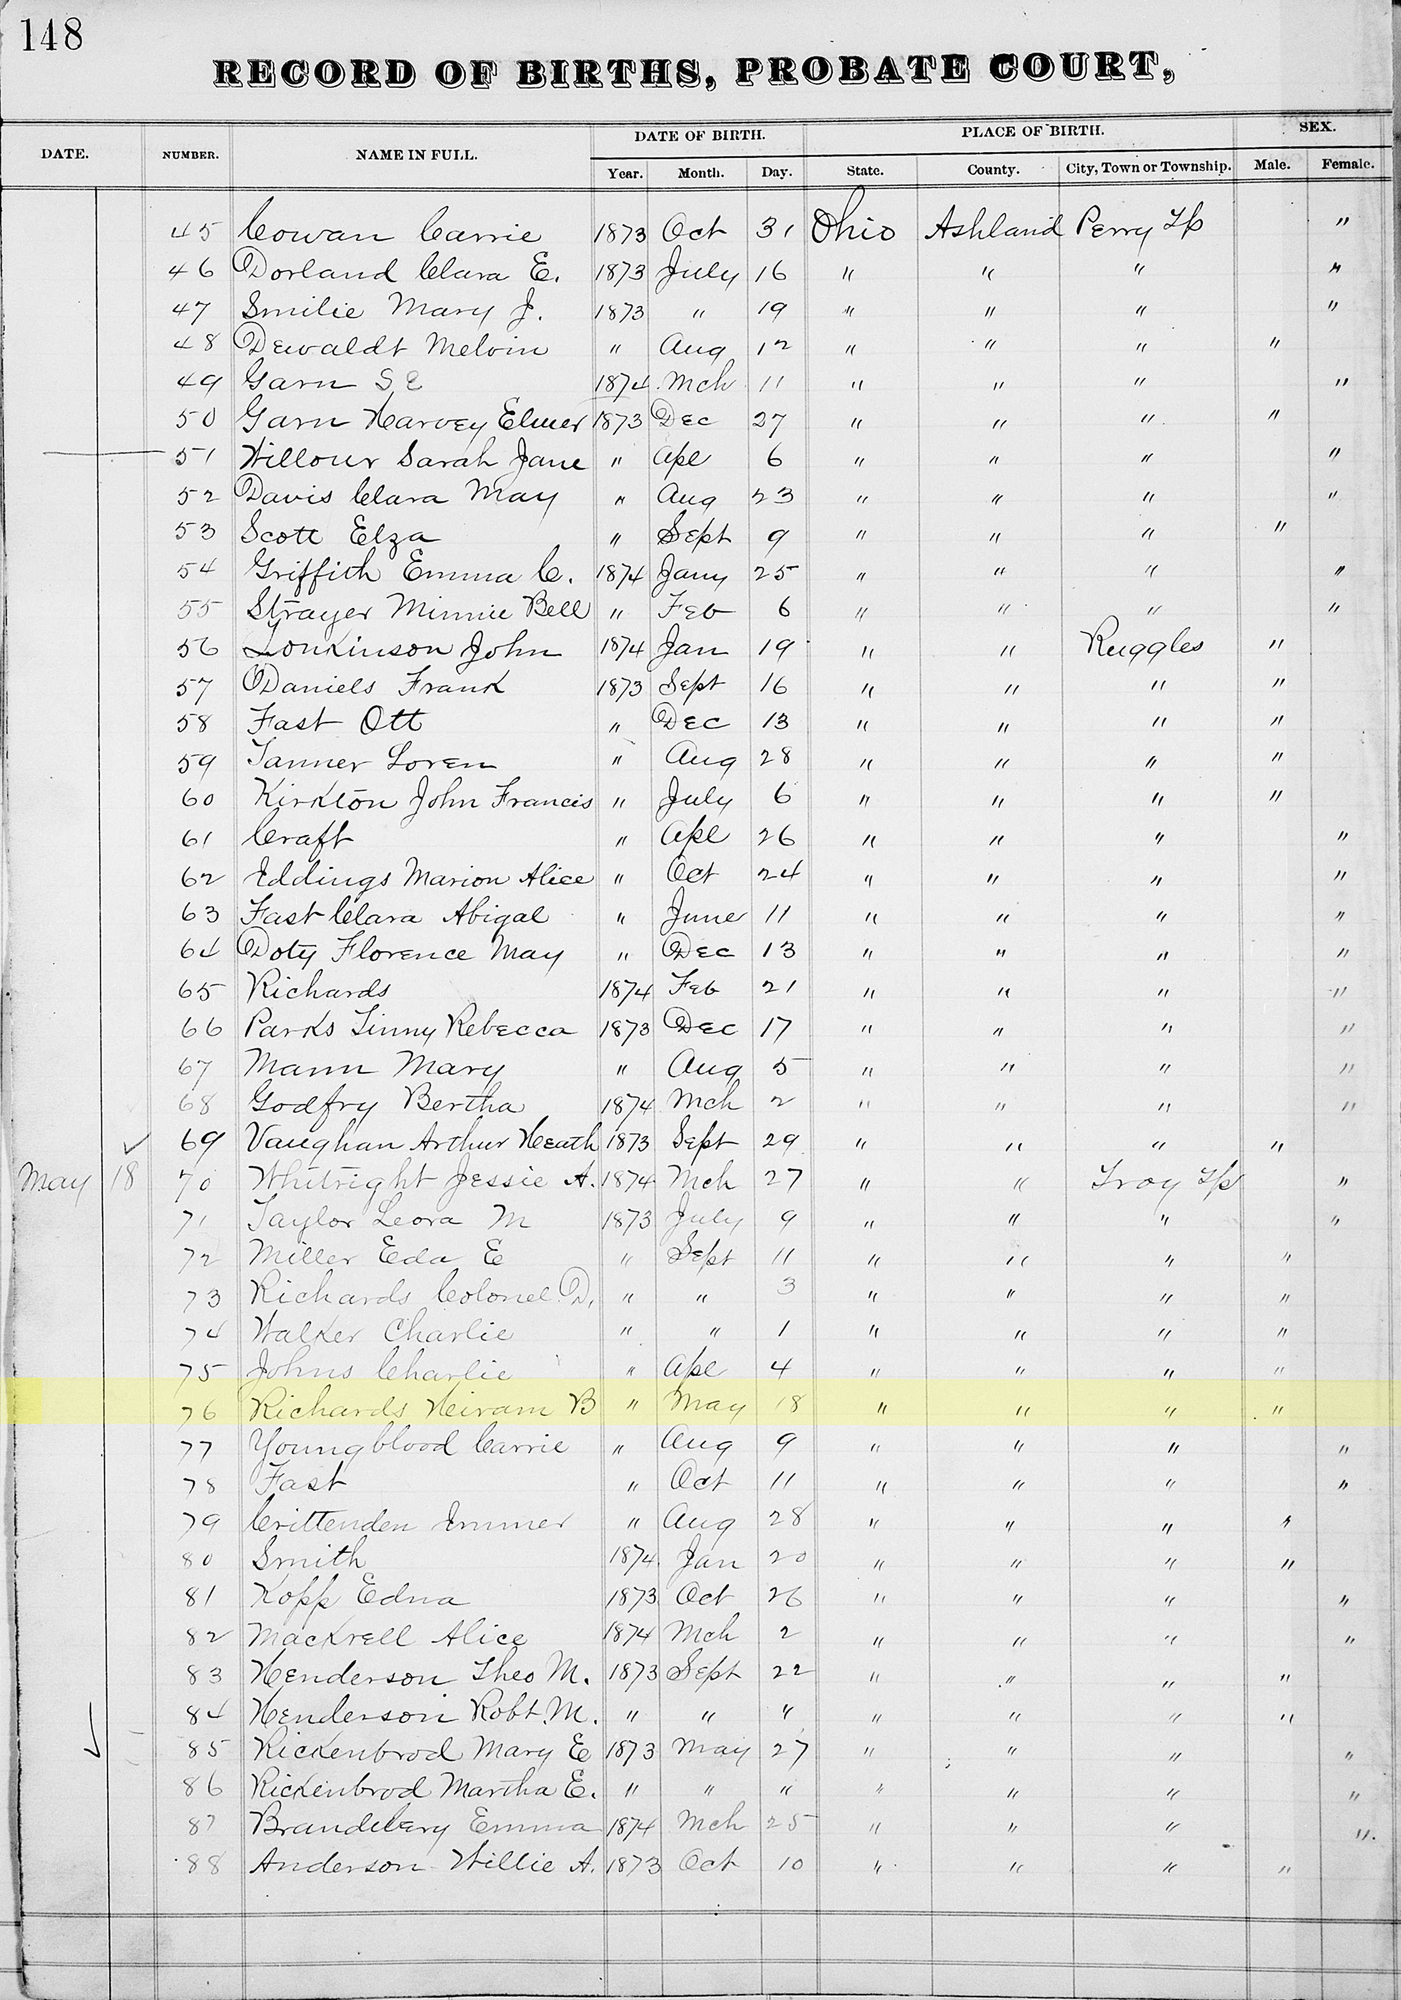 148
RECORD OF BIRTHS, PROBATE COURT,
DATE. NUMBER. NAME IN FULL. DATE OF BIRTH. PLACE OF BIRTH. SEX.
Year. Month. Day. State. County. City, Town or Township. Male. Female.
45 Cowan Carrie 1873 Oct 31 Ohio Ashland Perry Tp "
46 Dorland Clara E. 1873 July 16 " " " "
47 Smilie Mary J. 1873 " 19 " " " "
48 Dewaldt Melvin " Aug 12 " " " "
49 Garn S E 1874 Mch 11 " " " "
50 Garn Harvey Elmer 1873 Dec 27 " " " "
51 Willour Sarah Jane " Apl 6 " " " "
52 Davis Clara May " Aug 23 " " " "
53 Scott Elza " Sept 9 " " " "
54 Griffith Emma C. 1874 Jany 25 " " " "
55 Strayer Minnie Bell " Feb 6 " " " "
56 Tonkinson John 1874 Jan 19 " " Ruggles "
57 Daniels Frank 1873 Sept 16 " " " "
58 Fast Ott " Dec 13 " " " "
59 Tanner Loren " Aug 28 " " " "
60 Kirkton John Francis " July 6 " " " "
61 Craft " Apl 26 " " " "
62 Eddings Marion Alice " Oct 24 " " " "
63 Fast Clara Abigal " June 11 " " " "
64 Doty Florence May " Dec 13 " " " "
65 Richards 1874 Feb 21 " " " "
66 Parks Linny Rebecca 1873 Dec 17 " " " "
67 Mann Mary " Aug 5 " " " "
68 Godfry Bertha 1874 Mch 2 " " " "
69 Vaughan Arthur Heath 1873 Sept 29 " " " "
May 18 70 Whitright Jessie A. 1874 Mch 27 " " Troy Tp "
71 Taylor Leora M 1873 July 9 " " " "
72 Miller Eda E " Sept 11 " " " "
73 Richards Colonel D. " " 3 " " " "
74 Walker Charlie " " 1 " " " "
75 Johns Charlie " Apl 4 " " " "
76 Richards Hiram B " May 18 " " " "
77 Youngblood Carrie " Aug 9 " " " "
78 Fast " Oct 11 " " " "
79 Crittenden Emmer " Aug 28 " " " "
80 Smith 1874 Jan 20 " " " "
81 Kopp Edna 1873 Oct 26 " " " "
82 Mackrell Alice 1874 Mch 2 " " " "
83 Henderson Theo M. 1873 Sept 22 " " " "
84 Henderson Robt. M. " " " " " " "
85 Rickenbrod Mary E 1873 May 27 " " " "
86 Rickenbrod Martha E. " " " " " " "
87 Brandebery Emma 1874 Mch 25 " " " "
88 Anderson Willie A. 1873 Oct 10 " " " "